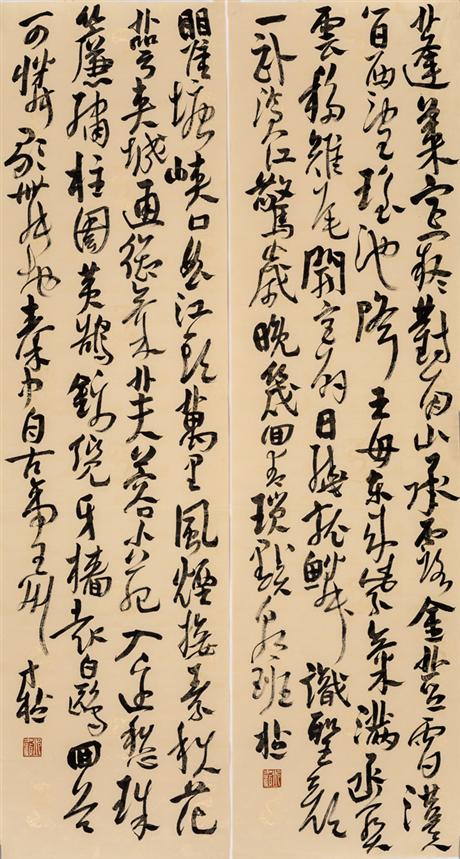 蓬萊宮闕對南山承露金莖霄漢
間西望瑤池降王母東來紫氣滿函關
雲移雉尾開宮扇日繞龍鱗識聖顏
一臥滄江驚歲晚幾回青瑣點朝班
瞿塘峽口曲江頭萬里風煙接素秋花
萼夾城通御氣芙蓉小苑入邊愁珠
簾繡柱圍黃鵠錦纜牙檣起白鷗回首
可憐歌舞地秦中自古帝王州